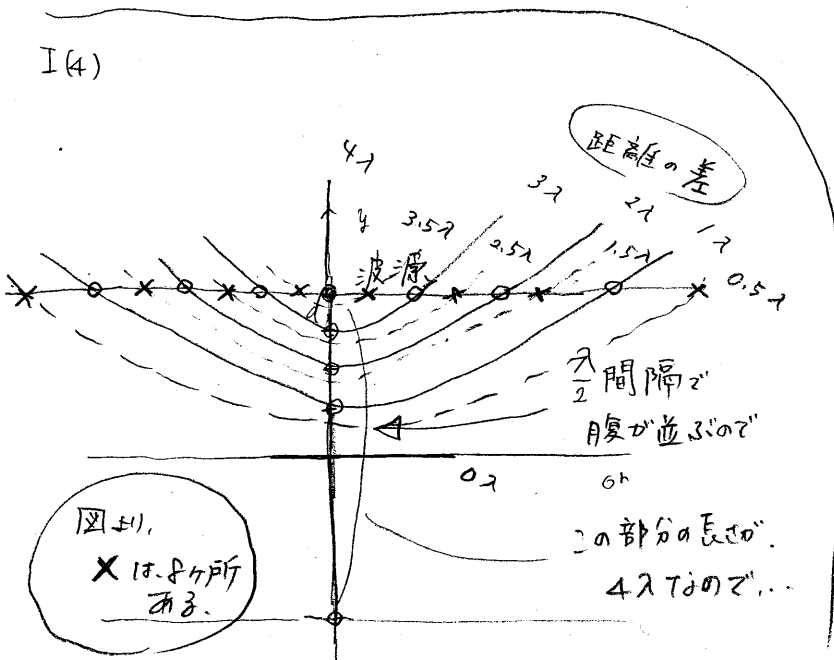 I(4)
距離の差
4λ
y
3.5λ
3λ
2.5λ
2λ
1.5λ
1λ
0.5λ
波源
λ/2 間隔で
腹が並ぶので
0λ
この部分の長さが、
4λなので...
図より、
×は、8ヶ所
ある.